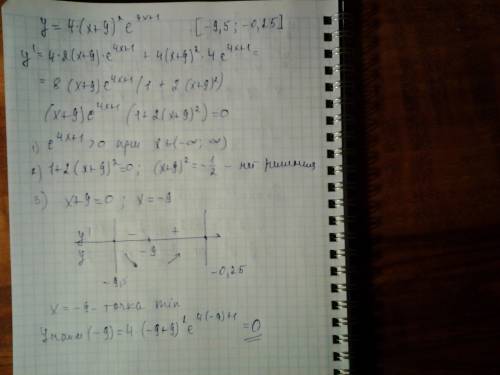 y = 4·(x+9)² e^{4x+1} [-9,5; -0,25]
y' = 4·2(x+9)·e^{4x+1} + 4(x+9)²·4e^{4x+1} =
= 8(x+9)e^{4x+1}(1 + 2(x+9)²)
(x+9)e^{4x+1}(1+2(x+9)²)=0
1) e^{4x+1} >0 при x ∈(-∞; ∞)
2) 1+2(x+9)²=0; (x+9)² = -1/2 - нет решения
3) x+9=0; x=-9
y' - +
y -9
-9,5 -0,25
x = -9 - точка min
y наим (-9) = 4·(-9+9)² e^{4(-9)+1} = 0